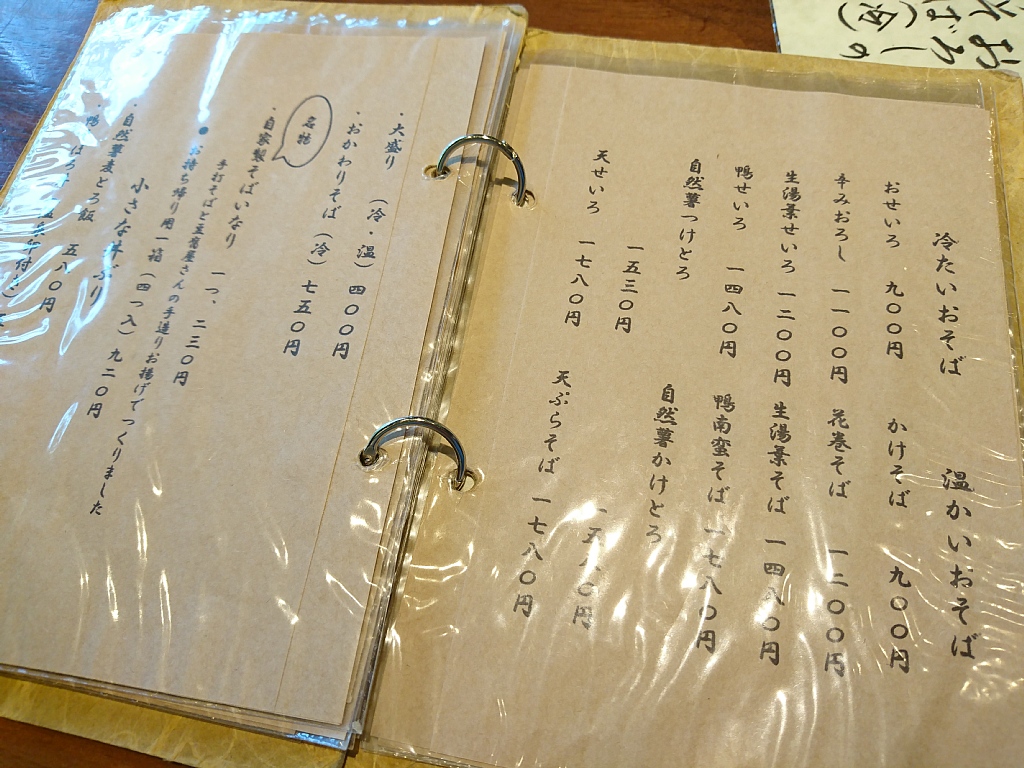 冷たいおそば
おせいろ 九〇〇円
辛みおろし 一一〇〇円
生湯葉せいろ 一二〇〇円
鴨せいろ 一四八〇円
自然薯つけとろ
一五三〇円
天せいろ 一七八〇円
温かいおそば
かけそば 九〇〇円
花巻そば 一二〇〇円
生湯葉そば 一四八〇円
鴨南蛮そば 一七八〇円
自然薯かけとろ
一五八〇円
天ぷらそば 一七八〇円
・大盛り (冷・温) 四〇〇円
・おかわりそば (冷) 七五〇円
名物
・自家製そばいなり 一つ、二三〇円
手打そばと豆腐屋さんの手造りお揚げでつくりました
●お持ち帰り用一箱(四つ入) 九二〇円
小さな丼ぶり
・自然薯麦とろ飯 五八〇円